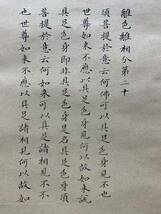 離色離相分第二十
須菩提於意云何佛可以具足色身見不不也
世尊如來不應以具足色身見何以故如來說
具足色身即非具足色身是名具足色身須
菩提於意云何如來可以具足諸相見不不
也世尊如來不應以具足諸相見何以故如